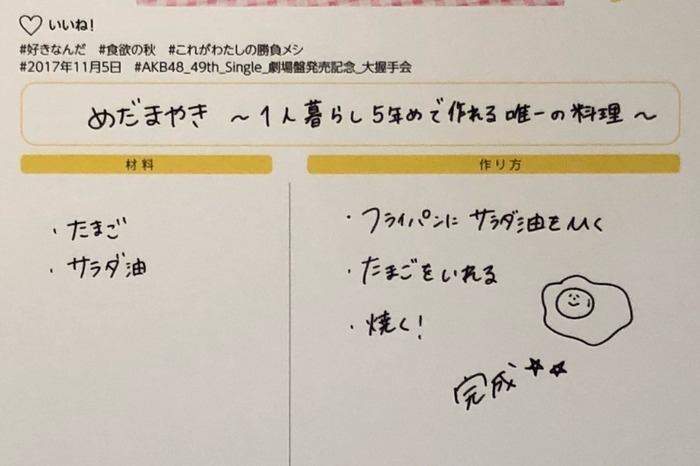 いいね!
#好きなんだ #食欲の秋 #これがわたしの勝負メシ
#2017年11月5日 #AKB48_49th_Single_劇場盤発売記念_大握手会
めだまやき 〜1人暮らし5年めで作れる唯一の料理〜
材料
作り方
・たまご
・サラダ油
・フライパンに サラダ油をひく
・たまごをいれる
・焼く!
完成☆☆